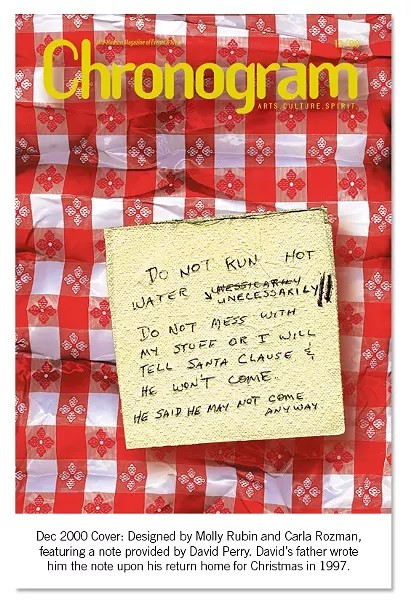 Chronogram
ARTS.CULTURE.SPIRIT.
DO NOT RUN HOT
WATER UNESSICARILY
UNECESSARILY
DO NOT MESS WITH
MY STUFF OR I WILL
TELL SANTA CLAUSE &
HE WON'T COME.
HE SAID HE MAY NOT COME
ANYWAY
Dec 2000 Cover: Designed by Molly Rubin and Carla Rozman,
featuring a note provided by David Perry. David's father wrote
him the note upon his return home for Christmas in 1997.